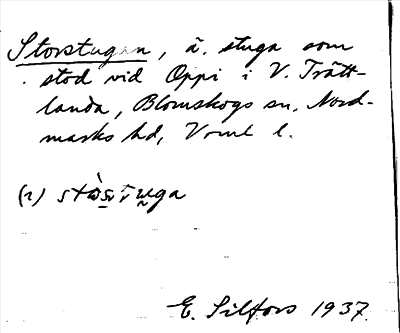 Storstugan, ä. stuga som
stod vid Oppi i V. Trätt-
landa, Blomskogs sn, Nord-
marks hd, Vrml l.
E. Silfors 1937.